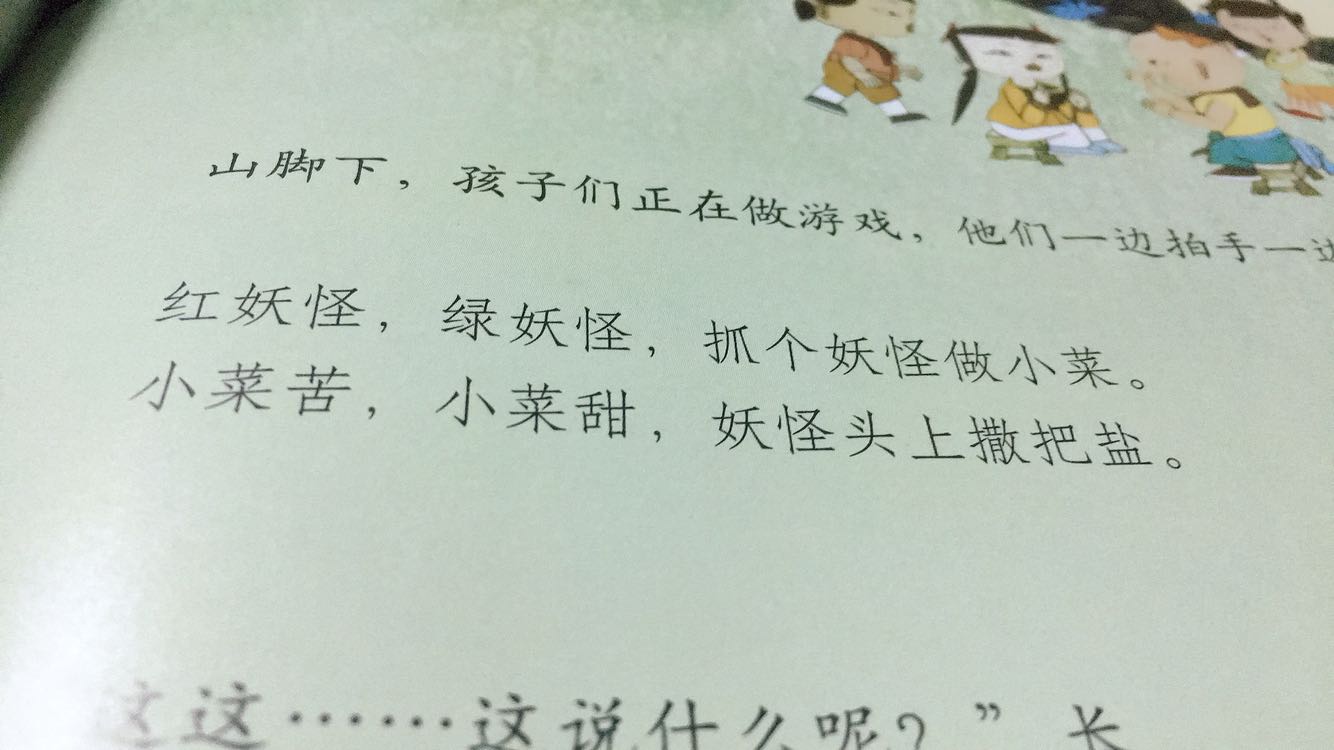 山脚下，孩子们正在做游戏，他们一边拍手一边
红妖怪，绿妖怪，抓个妖怪做小菜。
小菜苦，小菜甜，妖怪头上撒把盐。
这这……这说什么呢？”长